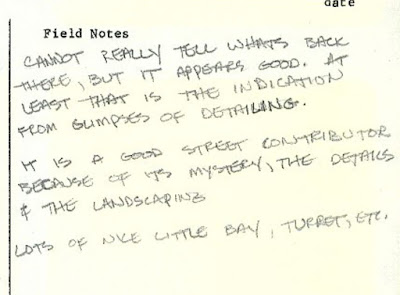 date
Field Notes
CANNOT REALLY TELL WHATS BACK
THERE, BUT IT APPEARS GOOD. AT
LEAST THAT IS THE INDICATION
FROM GLIMPSES OF DETAILING.
IT IS A GOOD STREET CONTRIBUTOR
BECAUSE OF ITS MYSTERY, THE DETAILS
& THE LANDSCAPING
LOTS OF NICE LITTLE BAY, TURRET, ETC.